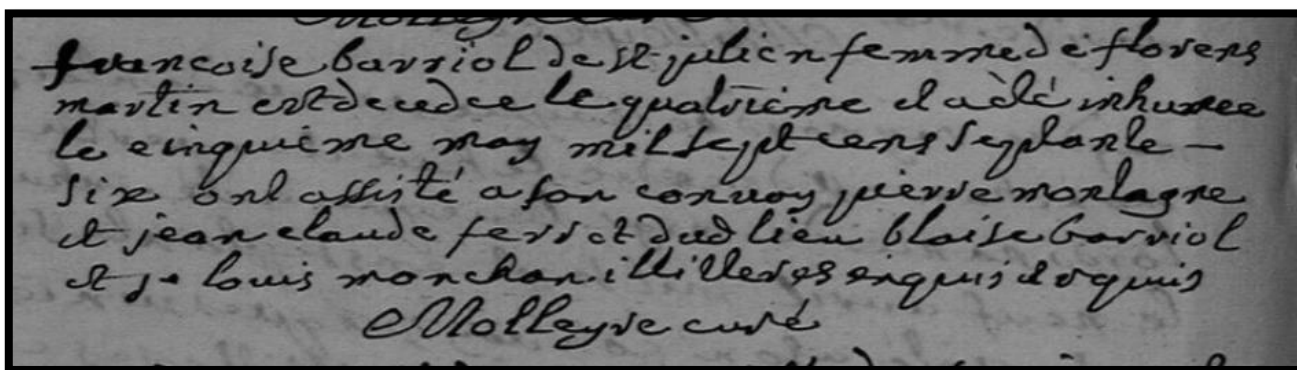 Molleyre curé
francoise barriol de st julien femme de florens
martin est decedee le quatrieme et a eté inhumee
le cinquieme may mil sept cens septante –
six ont assisté a son convoy pierre montagne
et jean claude ferrot dud lieu blaise barriol
et j. louis monchan illitteres enquis et requis
Molleyre curé